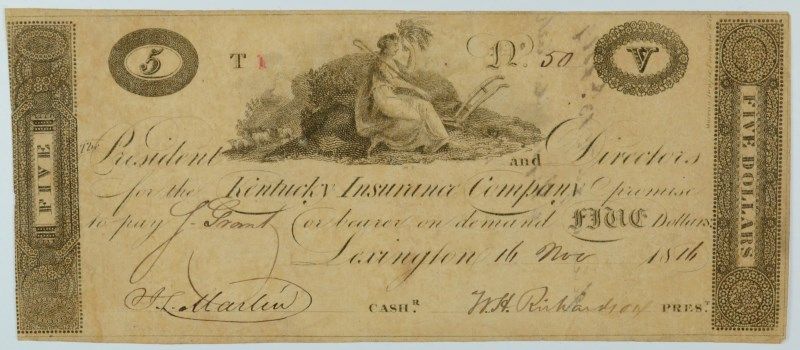 5 T 1 No. 50 V
FIVE
FIVE DOLLARS
The President and Directors
for the Kentucky Insurance Company promise
to pay J. Grant or bearer on demand FIVE Dollars
Lexington 16 Nov 1816
J. L. Martin CASH.R W.H. Richardson PRES.T